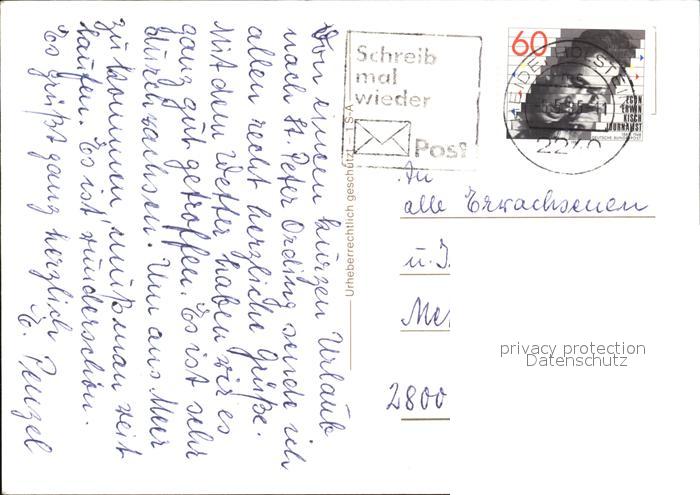 Von einem kurzen Urlaub
nach St. Peter Ording sende ich
allen recht herzliche Grüße.
Mit dem Wetter haben wir es
ganz gut getroffen. Es ist sehr
durchwachsen. Um ans Meer
zu kommen, muß man weit
laufen. Es ist wunderschön.
Es grüßt ganz herzlich
E. Penzel
Urheberrechtlich geschützt
Schreib
mal
wieder
Post
60
EGON
ERWIN
KISCH
JOURNALIST
DEUTSCHE BUNDESPOST
HEIDE, HOLSTEIN
2240
An
alle Erwachsenen
u. J
Me
2800
privacy protection
Datenschutz